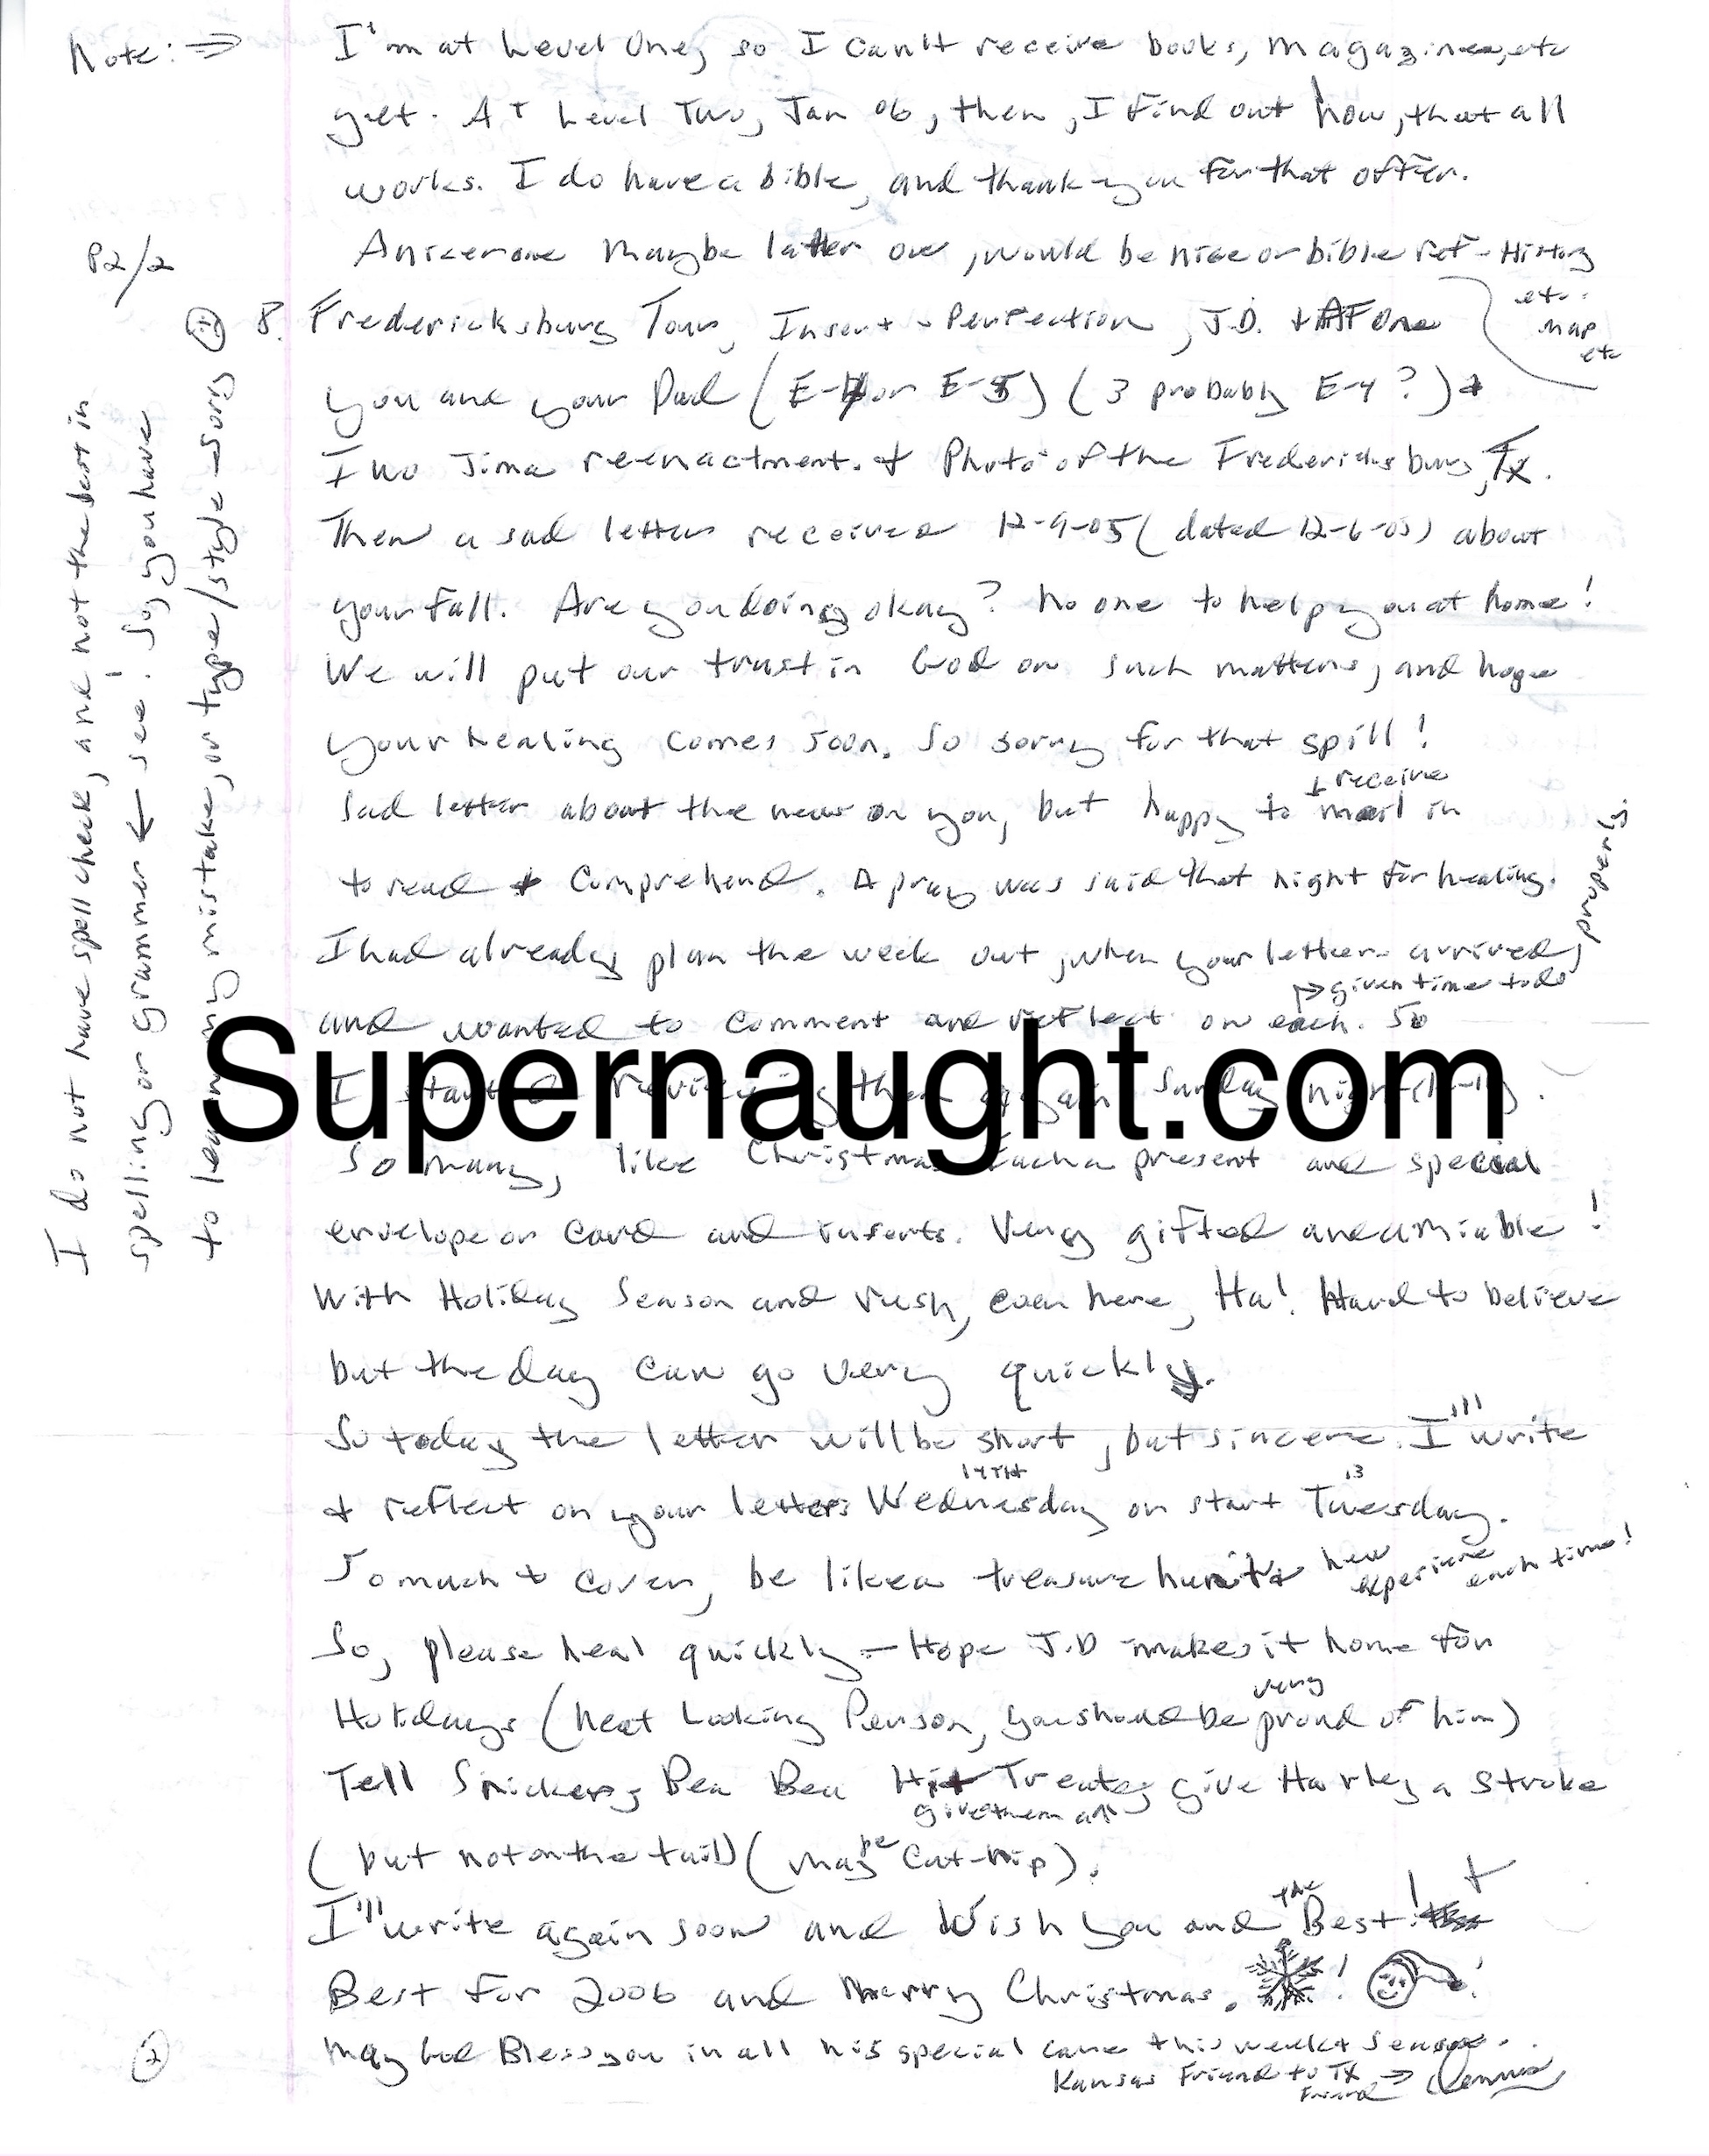 Note: ⇒ I'm at Level One, so I can't receive books, magazines, etc
yet. At Level Two, Jan 06, then, I find out how, that all
works. I do have a bible, and thank-you for that offer.
A nicer one maybe latter on, would be nice or bible ref - History
etc..
map
etc
P2/2
8. Fredericksburg Tour, Insert - Perfection, J.D. + AF One
you and your Dad (E-4 or E-5) (3 probably E-4?) +
Iwo Jima reenactment. + Photo of the Fredericksburg, Tx.
Then a sad letter received 12-9-05 (dated 12-6-05) about
your fall. Are you doing okay? No one to help you at home!
We will put our trust in God on such matters, and hope
your healing comes soon. So sorry for that spill!
+ receive
Sad letter about the news on you, but happy to mail in
to read + comprehend. A pray was said that night for healing.
I had already plan the week out, when your letters arrived,
properly
⇒ given time to do
and wanted to comment and reflect on each. So
I started reviewing them again Sunday night
So many, like Christmas Each a present and special
envelope or card and inserts. Very gifted and amiable!
With Holiday Season and rush, even here, Ha! Hard to believe
but the day can go very quickly.
So today the letter will be short, but sincere. I'll write
14TH 13
+ reflect on your letters Wednesday or start Tuesday.
So much to cover, be like a treasure hunt + new experience each time!
So, please heal quickly - Hope J.D makes it home for
very
Holidays (neat Looking Person, you should be proud of him)
Tell Snickers, Bea Bea Hit Treats, give Harley a stroke
give them all
(but not on the tail) (maybe Cat-nip).
I'll write again soon and Wish you and the Best! +
Best for 2006 and Merry Christmas. !
May God Bless you in all his special care this week + season.
Kansas Friend to TX
Friend ⇒ Dennis
2
I do not have spell check, and not the best in
spelling or grammer ← see! So, you have
to learn my mistake, or type/style - sorry
Supernaught.com